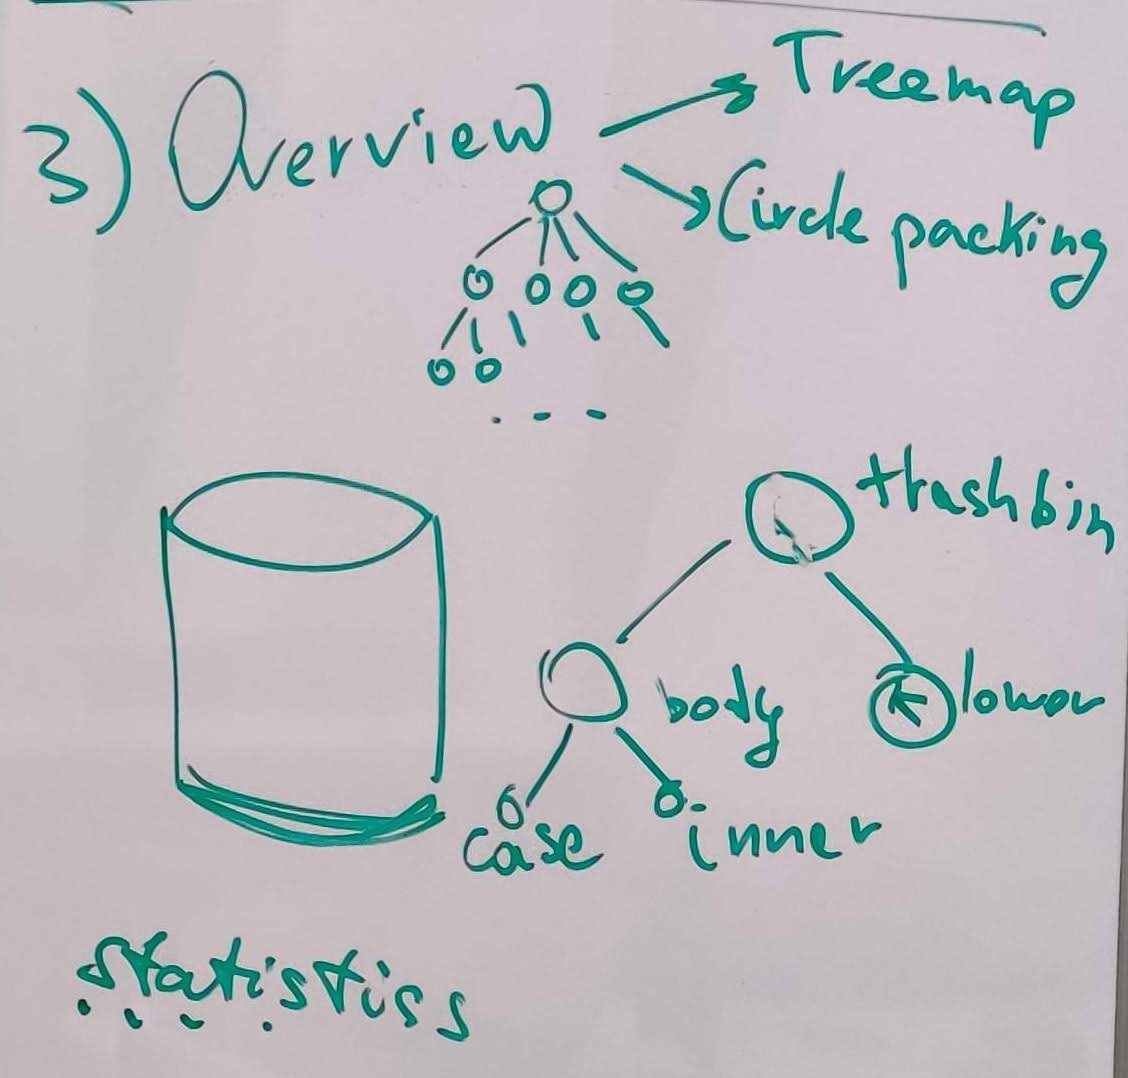 3) Overview
Treemap
Circle packing
trashbin
body
lower
case
inner
statistiss